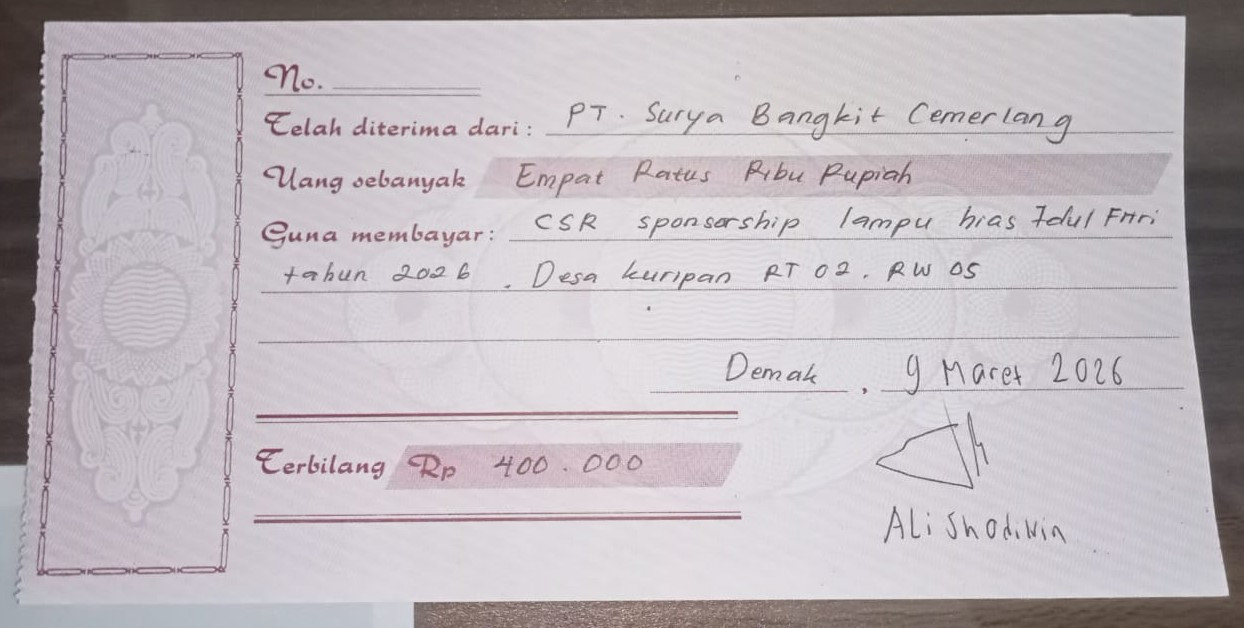 No.
Telah diterima dari : PT. Surya Bangkit Cemerlang
Uang sebanyak Empat Ratus Ribu Rupiah
Guna membayar : CSR sponsorship lampu hias Idul Fitri
tahun 2026 . Desa kuripan RT 02. RW 05
Demak , 9 Maret 2026
Terbilang Rp 400.000
Ali Shodikin